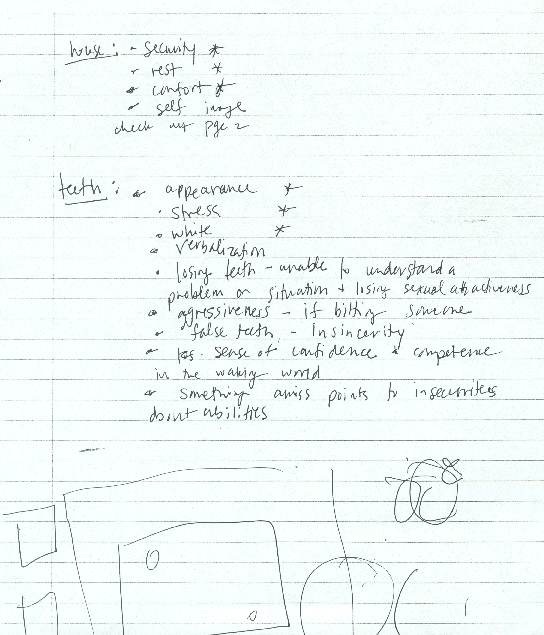 house: - security *
- rest *
- comfort *
- self image
check out pge 2
teeth: - appearance *
- stress *
- white *
- verbalization
- losing teeth - unable to understand a
problem or situation + losing sexual attractiveness
- aggressiveness - if biting someone
- false teeth - insincerity
- sense of confidence & competence
in the waking world
- something amiss points to insecurities
about abilities